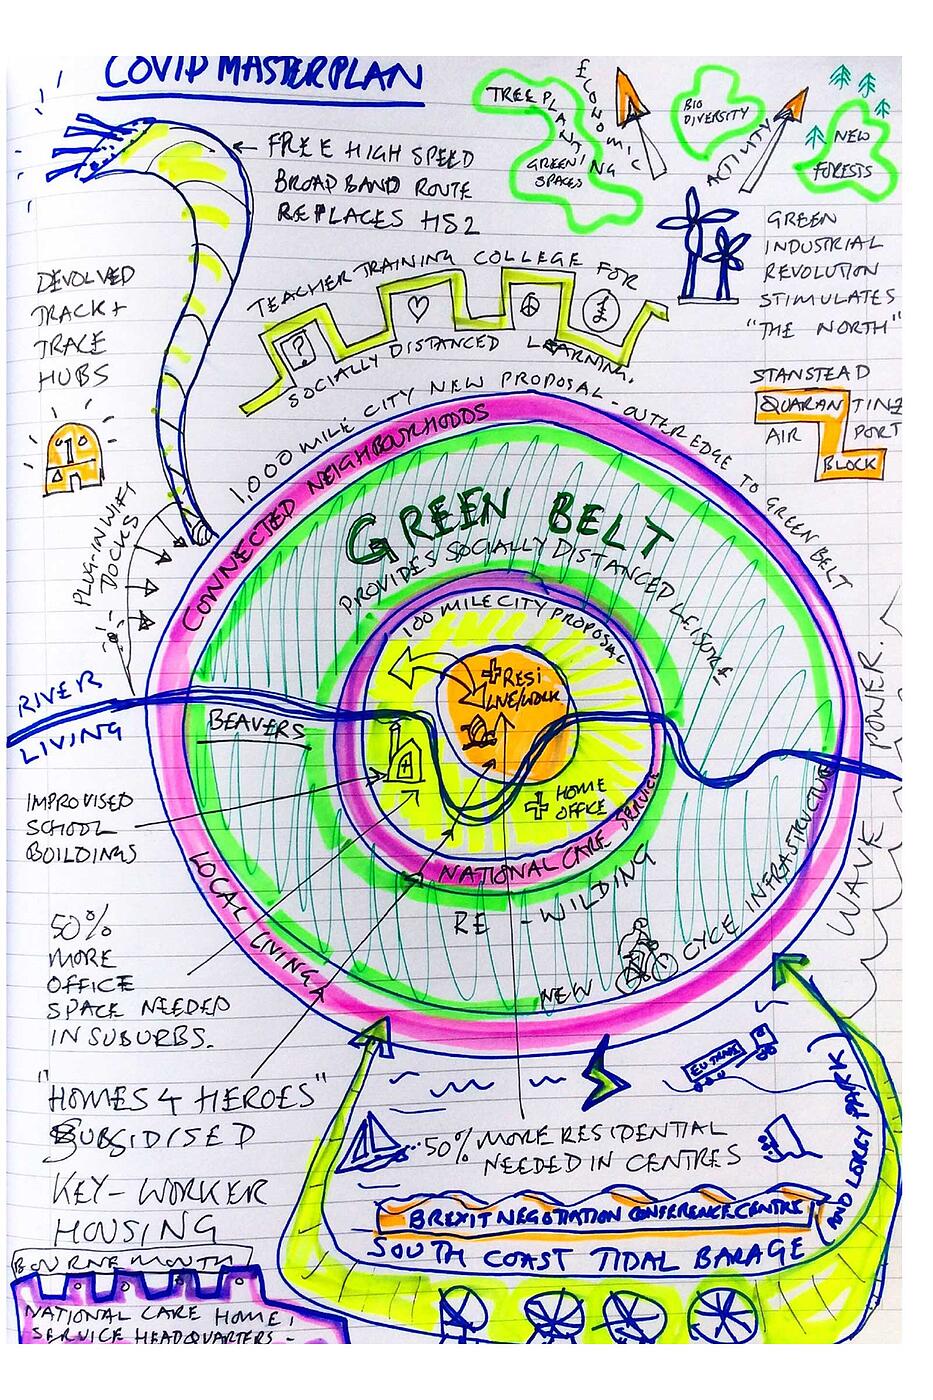 COVID MASTERPLAN
TREE PLANTING
GREEN
SPACES
£CONOMIC
ACTIVITY
BIO
DIVERSITY
NEW
FORESTS
FREE HIGH SPEED
BROADBAND ROUTE
REPLACES HS2
GREEN
INDUSTRIAL
REVOLUTION
STIMULATES
"THE NORTH"
DEVOLVED
TRACK +
TRACE
HUBS
TEACHER TRAINING COLLEGE FOR
? £
SOCIALLY DISTANCED LEARNING.
STANSTEAD
QUARANTINE
AIR PORT
BLOCK
1,000 MILE CITY NEW PROPOSAL - OUTER EDGE TO GREEN BELT
CONNECTED NEIGHBOURHOODS
PLUG-IN WIFI
DOCKS
GREEN BELT
PROVIDES SOCIALLY DISTANCED LEISURE
100 MILE CITY PROPOSAL
+ RESI
LIVE/WORK
RIVER
LIVING
BEAVERS
+ HOME
OFFICE
IMPROVISED
SCHOOL
BUILDINGS
NATIONAL CARE SERVICE
RE-WILDING
LOCAL LIVING
NEW CYCE INFRASTRUCTURE
WAVE POWER.
50%
MORE
OFFICE
SPACE NEEDED
IN SUBURBS.
"HOMES 4 HEROES"
SUBSIDISED
KEY-WORKER
HOUSING
50% MORE RESIDENTIAL
NEEDED IN CENTRES
BREXIT NEGOTIATION CONFERENCE CENTRE
(AND LORRY PARK)
SOUTH COAST TIDAL BARAGE
BOURNEMOUTH
NATIONAL CARE HOME
SERVICE HEADQUARTERS -